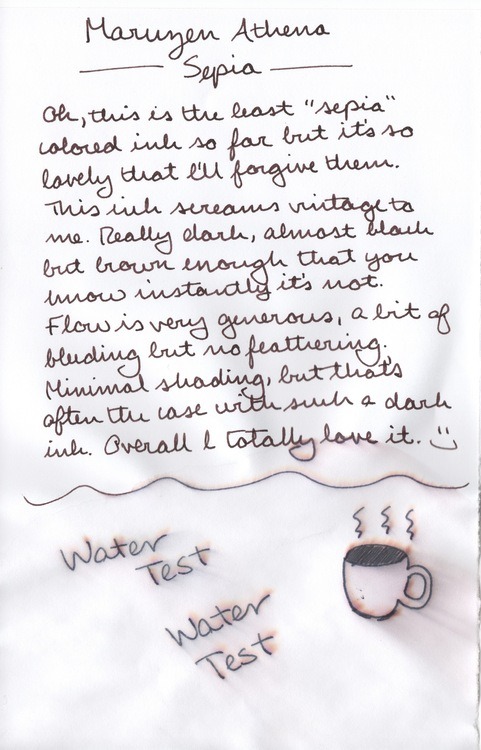 Maruzen Athena
Sepia
Oh, this is the least "sepia"
colored ink so far but it's so
lovely that I'll forgive them.
This ink screams vintage to
me. Really dark, almost black
but brown enough that you
know instantly it's not.
Flow is very generous, a bit of
bleeding but no feathering.
Minimal shading, but that's
often the case with such a dark
ink. Overall I totally love it. :)
Water
Test
Water
Test